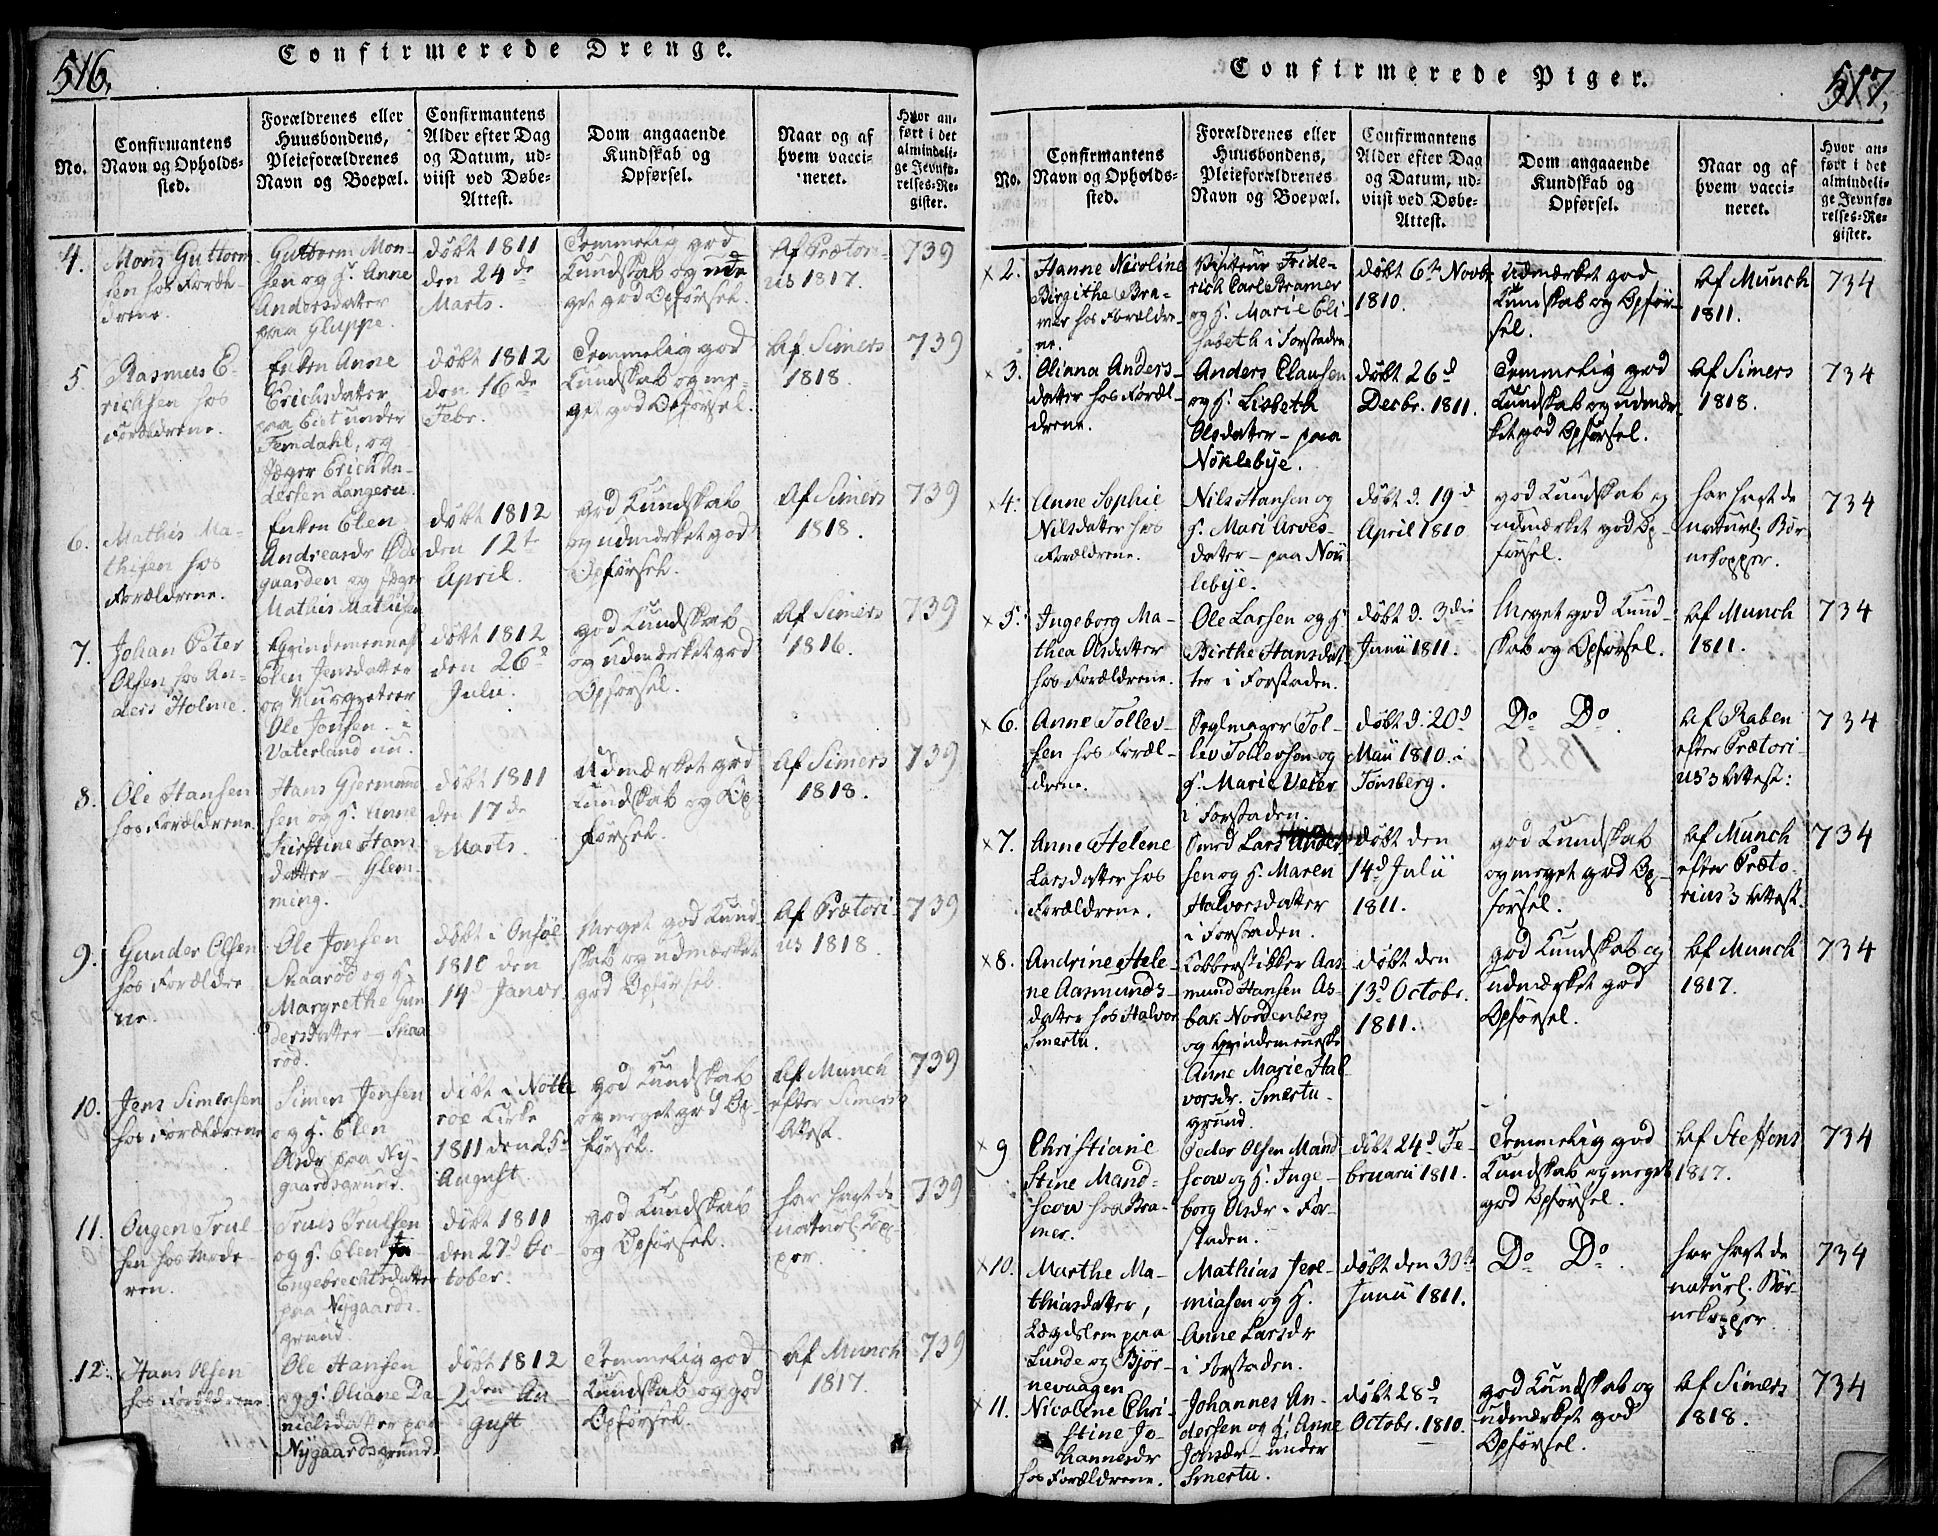 516.
Confirmerede Drenge.
No.
Confirmantens
Navn og Opholds-
sted.
Forældrenes eller
Huusbondens,
Pleieforældrenes
Navn og Boepæl.
Confirmantens
Alder efter Dag
og Datum, ud-
viist ved Døbe-
Attest.
Dom angaaende
Kundskab og
Opførsel.
Naar og af
hvem vacci-
neret.
Hvor an-
ført i det
almindeli-
ge Jevnfø-
relses-Re-
gister.
4.
Mons Guttorm
sen hos Foræl-
drene.
Guttorm Mon-
sen og H. Anne
Andersdatter
paa Gluppe.
døbt 1811
den 24de
Marts.
Temmelig god
Kundskab og me
get god Opførsel.
Af Prætori-
us 1817.
739
5
Rasmus E-
richsen hos
Forældrene.
Enken Anne
Erichsdatter
paa Eiet under
Femdahl, og
Jæger Erich An-
dersen Langeru.
døbt 1812
den 16de
Febr.
Temmelig god
Kundskab og me-
get god Opførsel.
Af Simers
1818.
739
6.
Mathis Ma-
thisen hos
Forældrene.
Enken Elen
Andreasdr Øde
gaarden og Jæger
Mathis Mathisen
døbt 1812
den 12te
April.
god Kundskab
og udmærket god
Opførsel.
Af Simers
1818.
739
7.
Johan Peter
Olsen hos An-
ders Holme.
Qvindemennesk
Elen Jensdatter
og Musqveteer
Ole Jonsen i
Vaterland nu.
døbt 1812
den 26d
Julii.
god Kundskab
og udmærket god
Opførsel.
Af Simers
1816.
739
8.
Ole Hansen
hos Forældrene.
Hans Giermund
sen og H. Anne
Kirstine Hans
datter Glem-
meng.
døbt 1811
den 17de
Marts.
Udmærket god
Kundskab og Op
førsel.
Af Simers
1818.
739
9.
Gunder Olsen
hos Forældre
ne.
Ole Jonsen
Skaarød og H.
Margrethe Gun
dersdatter Skaa
rød.
døbt i Onsøe
1810 den
14d Janvr
Meget god Kund
skab og udmærket
god Opførsel.
Af Prætori
us 1818.
739
10.
Jens Simensen
hos Forældrene
Simen Jensen
og H. Elen
Olsdr paa Ny-
gaardsgrund.
døbt i Nøtte
røe Kirke
1811 den 25d
August
god Kundskab
og meget god Op-
førsel.
Af Munch
efter Simers's
Attest.
739
11.
Ougen Trul-
sen hos Mode-
ren.
Truls Trulsen
og H. Elen
Engebrechtsdatter
paa Nygaards.
grund.
døbt 1811
den 27d Oc-
tober.
god Kundskab
og Opførsel.
har havt de
naturl. Kop
per.
739
12.
Hans Olsen
hos Forældrene
Ole Hansen
og H. Oliane Da
nielsdatter paa
Nygaardsgrund.
døbt 1812
2den Au
gust
Temmelig god
Kundskab og god
Opførsel.
Af Munch
1817.
739
517.
Confirmerede Piger.
No.
Confirmantens
Navn og Opholds-
sted.
Forældrenes eller
Huusbondens,
Pleieforældrenes
Navn og Boepæl.
Confirmantens
Alder efter Dag
og Datum, ud-
viist ved Døbe-
Attest.
Dom angaaende
Kundskab og
Opførsel.
Naar og af
hvem vacci-
neret.
Hvor an-
ført i det
almindeli-
ge Jevnfø-
relses-Re-
gister.
x 2.
Hanne Nicoline
Birgithe Bra-
mer hos Forældre-
ne.
Visiteur Fride-
rich Carl Bramer
og H. Marie Eli-
sabeth i Forstaden
døbt 6te Novbr
1810.
Udmærket god
Kundskab og Opfør-
sel.
Af Munch
1811.
734
x 3.
Oliana Anders-
datter hos Foræl-
drene.
Anders Clausen
og H. Lisbeth
Olsdatter - paa
Nøklebye.
døbt 26d
Decbr. 1811.
Temmelig god
Kundskab og udmær-
ket god Opførsel.
Af Simers
1818.
734
x 4.
Anne Sophie
Nilsdatter hos
Forældrene.
Nils Hansen og
H. Mari Arves-
datter - paa Nøk
lebye.
døbt d. 19d
April 1810
god Kundskab og
udmærket god Op-
førsel.
har havt de
naturl. Bør
nekopper.
734
x 5.
Ingeborg Ma-
thea Olsdatter
hos Forældrene.
Ole Larsen og H.
Birthe Hansdat-
ter i Forstaden.
døbt d. 3die
Junii 1811.
Meget god Kund-
skab og Opførsel.
Af Munch
1811.
734
x 6.
Anne Tollev-
sen hos Foræl-
drene.
Seglmager Tol-
lev Tollevsen og
H. Marie Veter
i Forstaden.
døbt d. 20d
Maii 1810. i
Tønsberg.
Do Do.
Af Raben
efter Prætori-
us's Attest:
734
x 7.
Anne Helene
Larsdatter hos
Forældrene.
Smed Lars Ander
sen og H. Maren
Halvorsdatter
i Forstaden.
døbt den
14d Julii
1811.
god Kundskab
og meget god Op-
førsel.
Af Munch
efter Præto-
rius's Attest.
734
x 8.
Andrine Hele-
ne Aasmunds-
datter hos Halvor
Smertu.
Kobberstikker Aas-
mund Hansen As-
bak Nordenberg
og Qvindemenneske
Anne Marie Hal
vorsdr. Smertu-
grund.
døbt den
13d Octobr.
1811.
god Kundskab og
udmærket god
Opførsel.
Af Munch
1817.
734
x 9
Christiane
Stine Mand-
scow hos Bra-
mer.
Peder Olsen Mand
scow og H. Inge-
borg Olsdr i For-
staden.
døbt 24d Fe
bruarii 1811.
Temmelig god
Kundskab og meget
god Opførsel.
Af Steffens
1817.
734
x 10.
Marthe Ma-
thiasdatter,
Lægdslem paa
Lunde og Bjør-
nevaagen
Mathias Jere-
miasen og H.
Anne Larsdr
i Forstaden.
døbt den 30te
Junii 1811.
Do Do.
har havt de
naturl. Bør-
nekopper
734
x 11.
Nicoline Chri-
stine Jo-
hannesdr
hos Forældrene.
Johannes An-
dersen og H. Anne
Jonsdr - under
Smertu.
døbt 28d
Octobr. 1810.
god Kundskab og
udmærket god
Opførsel.
Af Simers
1818.
734